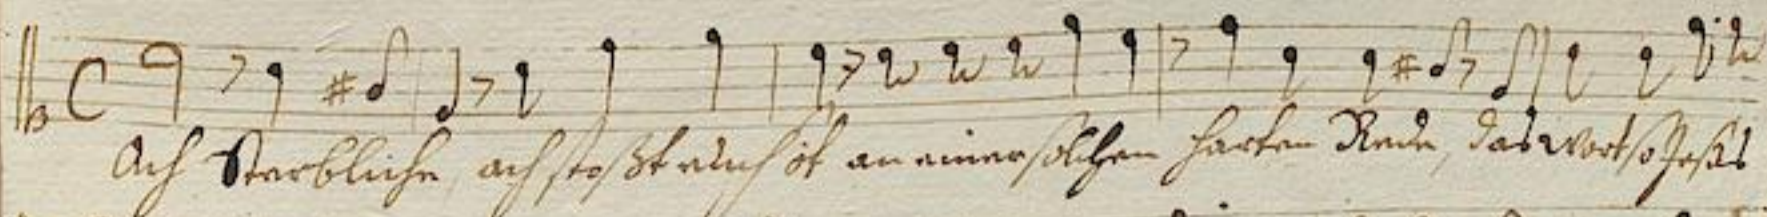 Ach Sterbliche, ach stoßt euch nit an einer solchen harten Rede, das Wort so Jesus